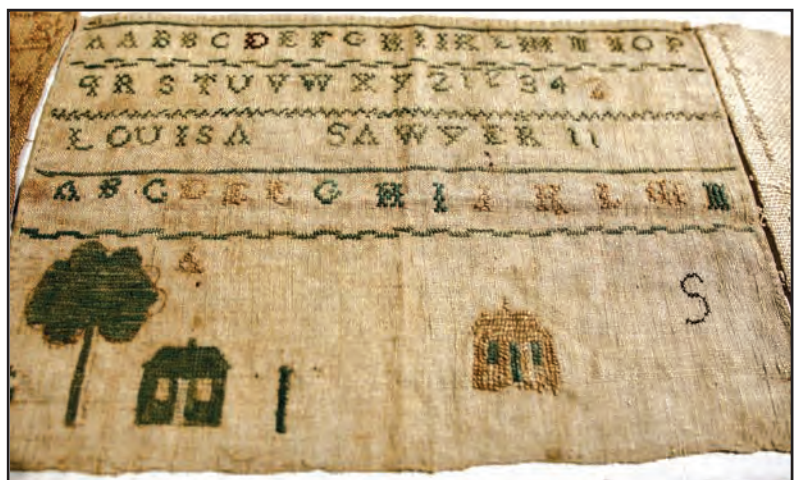 A A B B C D E F G H I I K L M N N O P
Q R S T U V W X Y Z 1 2 3 4
LOUISA SAWYER 11
A B C D E F G H I I K L M N
S